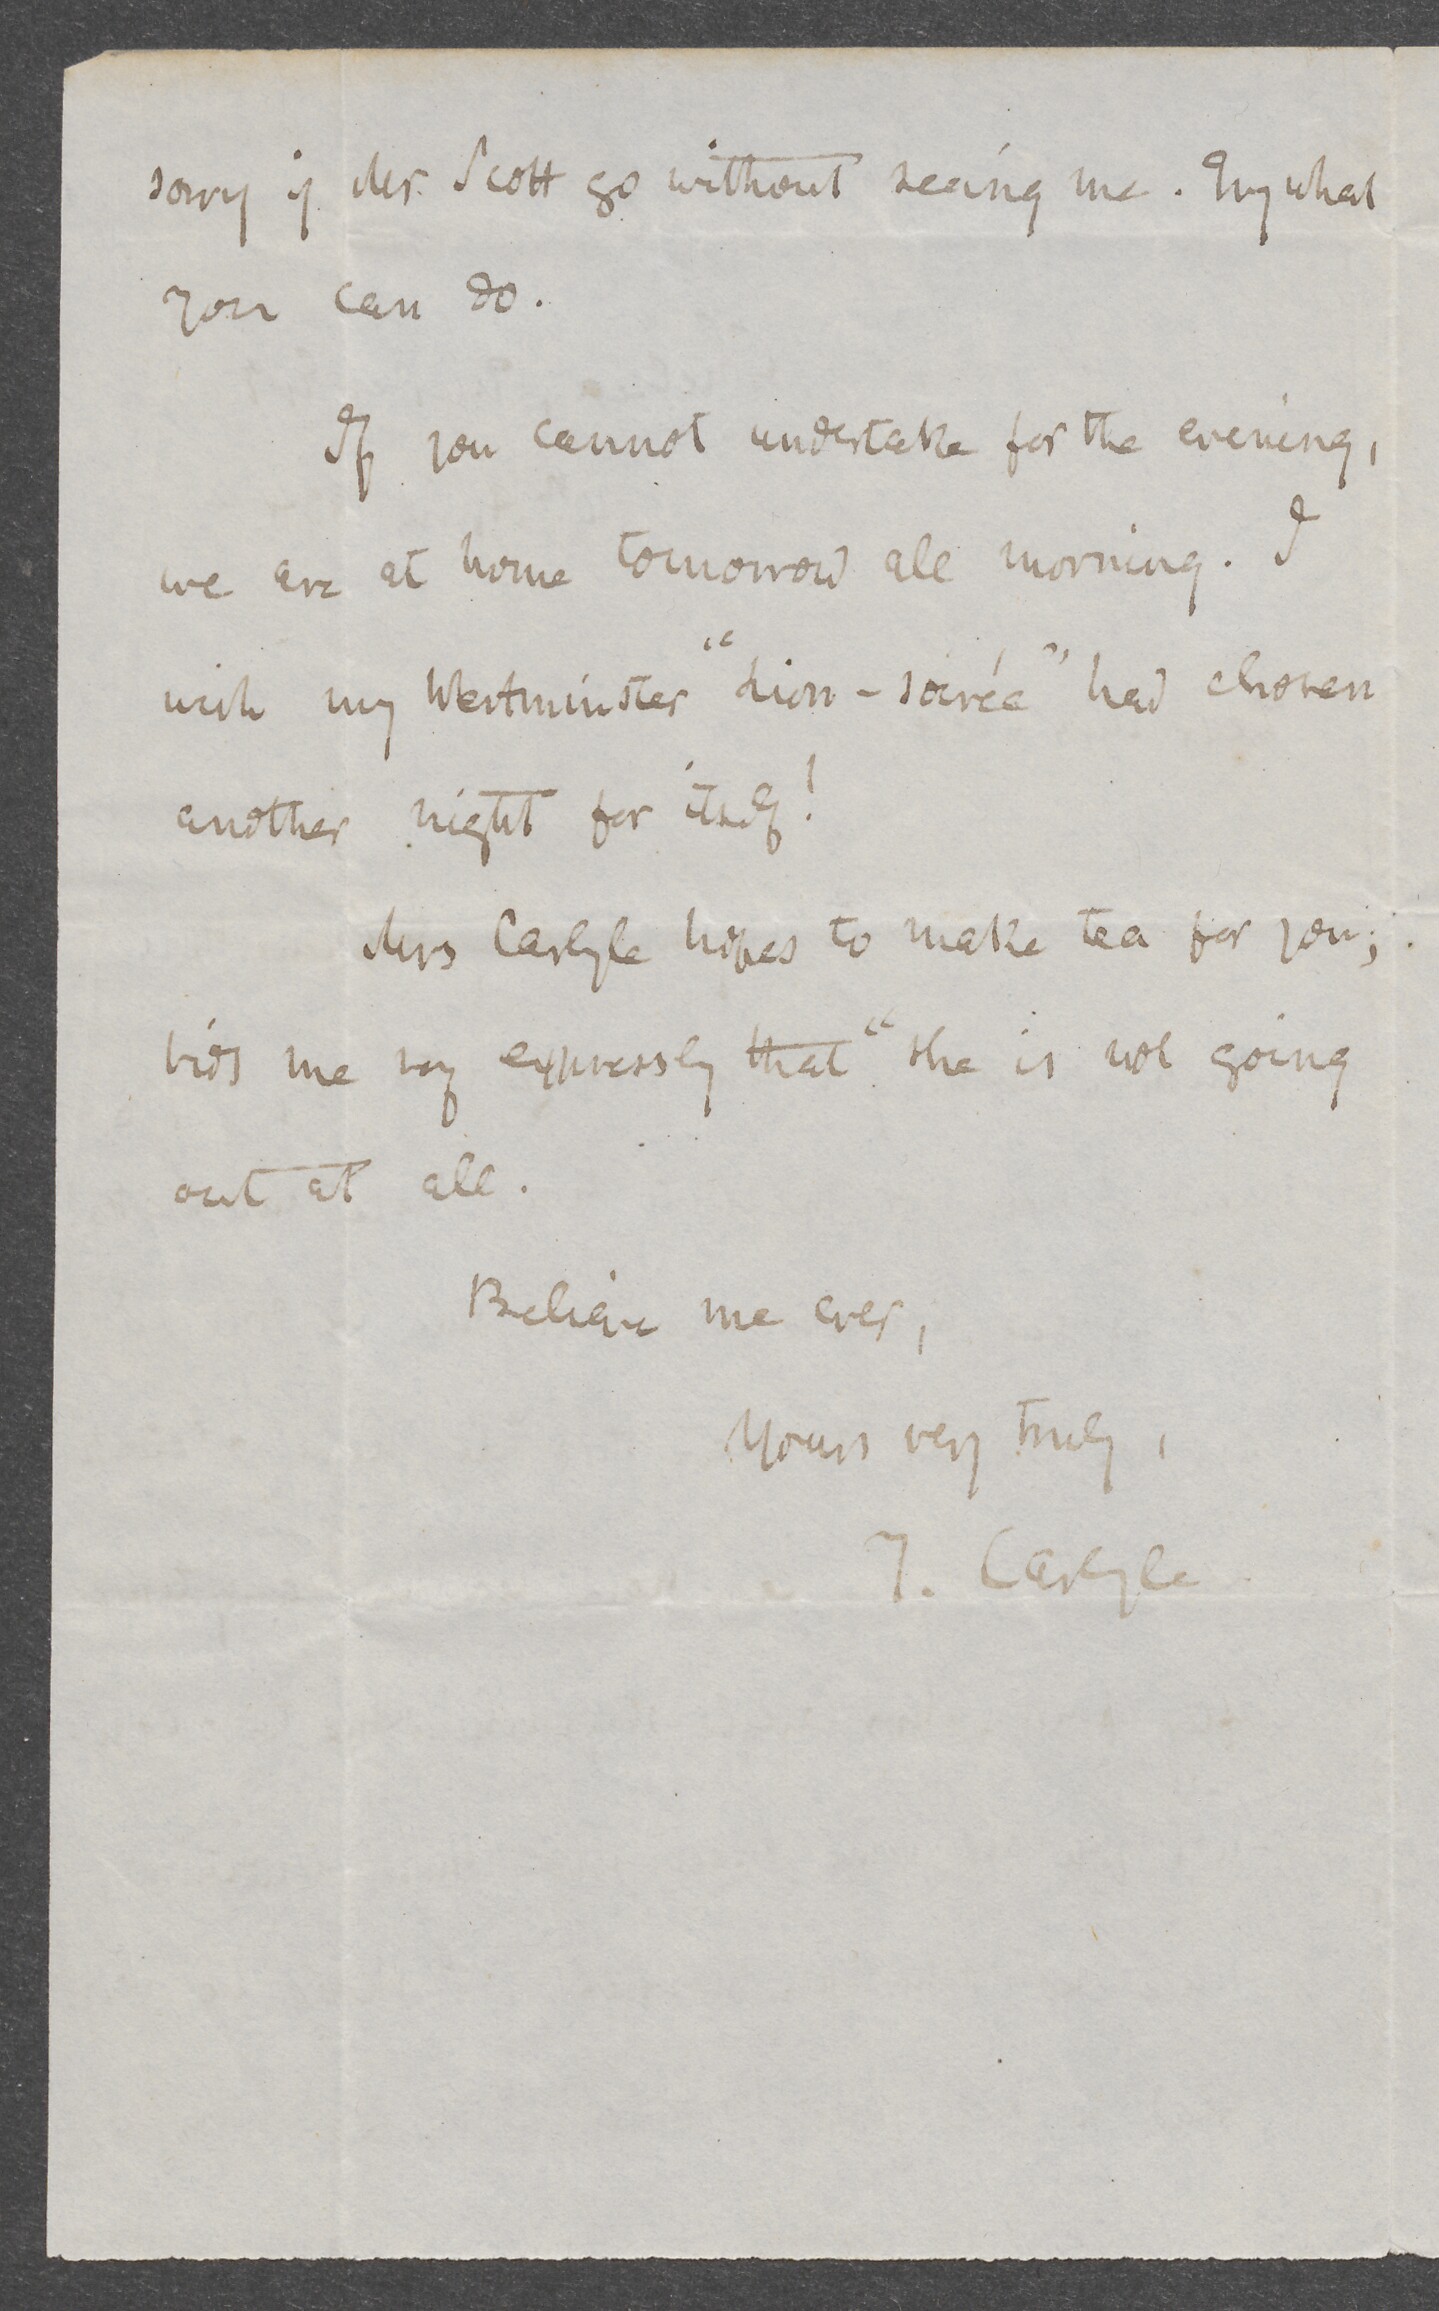 sorry if Mr. Scott go without seeing me. Try what
you can do.
If you cannot undertake for the evening,
we are at home tomorrow all morning. I
wish my Westminster "Lion-soirée" had chosen
another night for itself!
Mrs Carlyle hopes to make tea for you;
bids me say expressly that "she is not going
out at all.
Believe me ever,
Yours very truly,
T. Carlyle